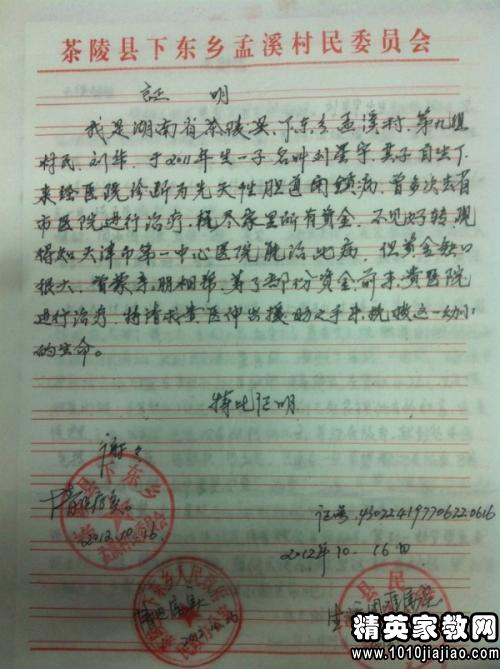 茶陵县下东乡孟溪村民委员会
证 明
我是湖南省茶陵县、下东乡孟溪村、第九组
村民、刘华、于2011年生一子名叫刘星宇、其子自生下
来经医院诊断为先天性胆道闭锁病、曾多次去省
市医院进行治疗、耗尽家里所有资金、不见好转、现
得知天津市第一中心医院能治此病、但资金缺口
很大、曾蒙亲朋相帮、筹了部份资金前来贵医院
进行治疗、特请求贵医伸出援助之手来挽救这一幼小
的生命。
特此证明
谢谢
下东乡
情况属实
2012.10.16
证号:430224197706220616
2012年10.16日
下东乡人民政府
情况属实
2012.10.16
县民
精英家教网
www.1010jiajiao.com